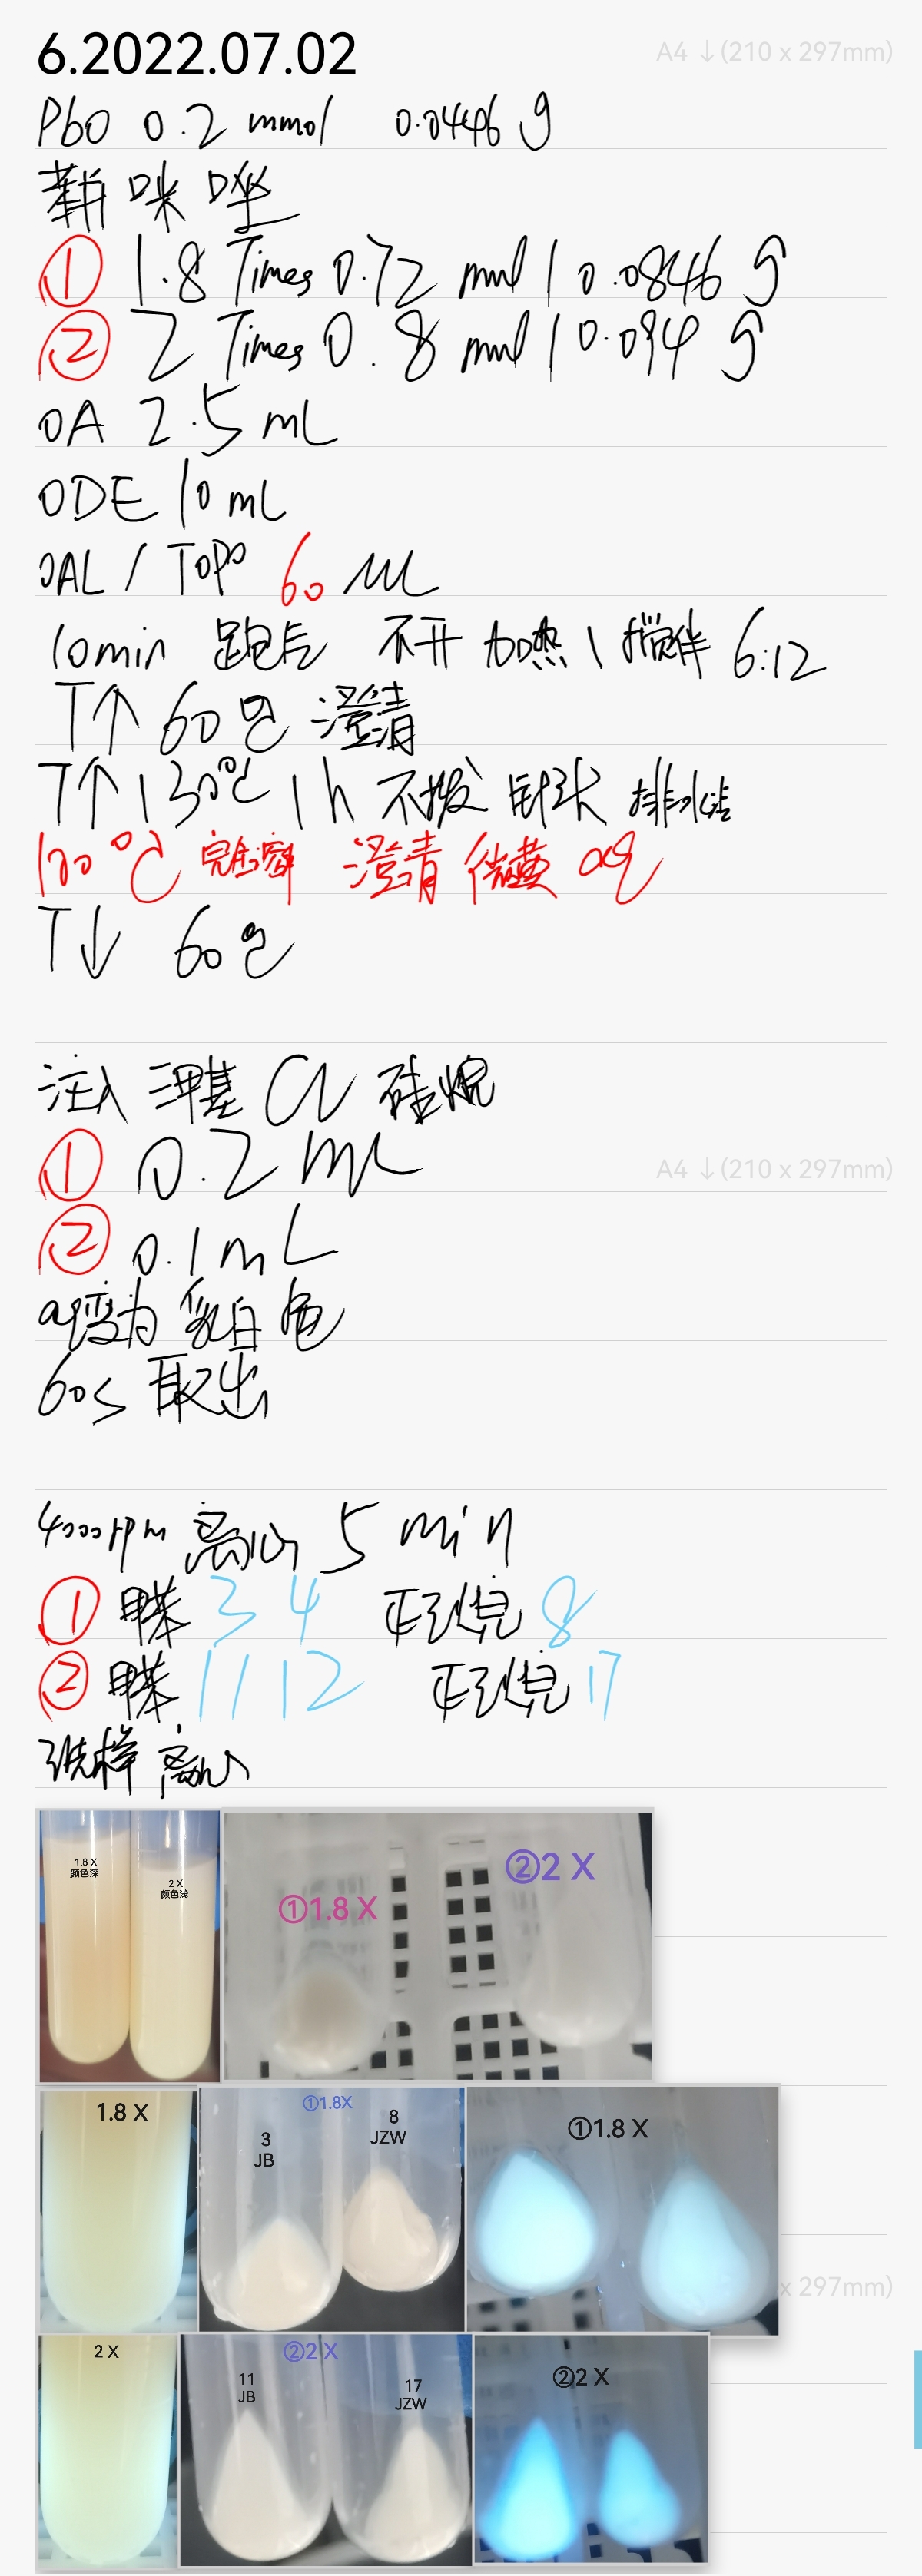 6.2022.07.02
A4 ↓(210 x 297mm)
PbO 0.2 mmol 0.0446 g
苯并咪唑
① 1.8 Times 0.72 mmol 0.0846 g
② 2 Times 0.8 mmol 0.094 g
OA 2.5 mL
ODE 10 mL
OAL / TOPO 60 mL
10min 跑后 不开加热、搅拌 6:12
T↑ 60℃ 澄清
T↑ 130℃ 1h 不拔针头 排水
100℃ 完全溶解 澄清 微黄 aq
T↓ 60℃
注入 三甲基 Cl 硅烷
① 0.2 mL
A4 ↓(210 x 297mm)
② 0.1 mL
aq变为 乳白色
60s 取出
4000 rpm 离心 5 min
① 甲苯 3 4 正己烷 8
② 甲苯 11 12 正己烷 17
洗样 离心
1.8 X
颜色深
2 X
颜色浅
①1.8 X
②2 X
1.8 X
①1.8X
3
JB
8
JZW
①1.8 X
x 297mm)
2 X
②2 X
11
JB
17
JZW
②2 X